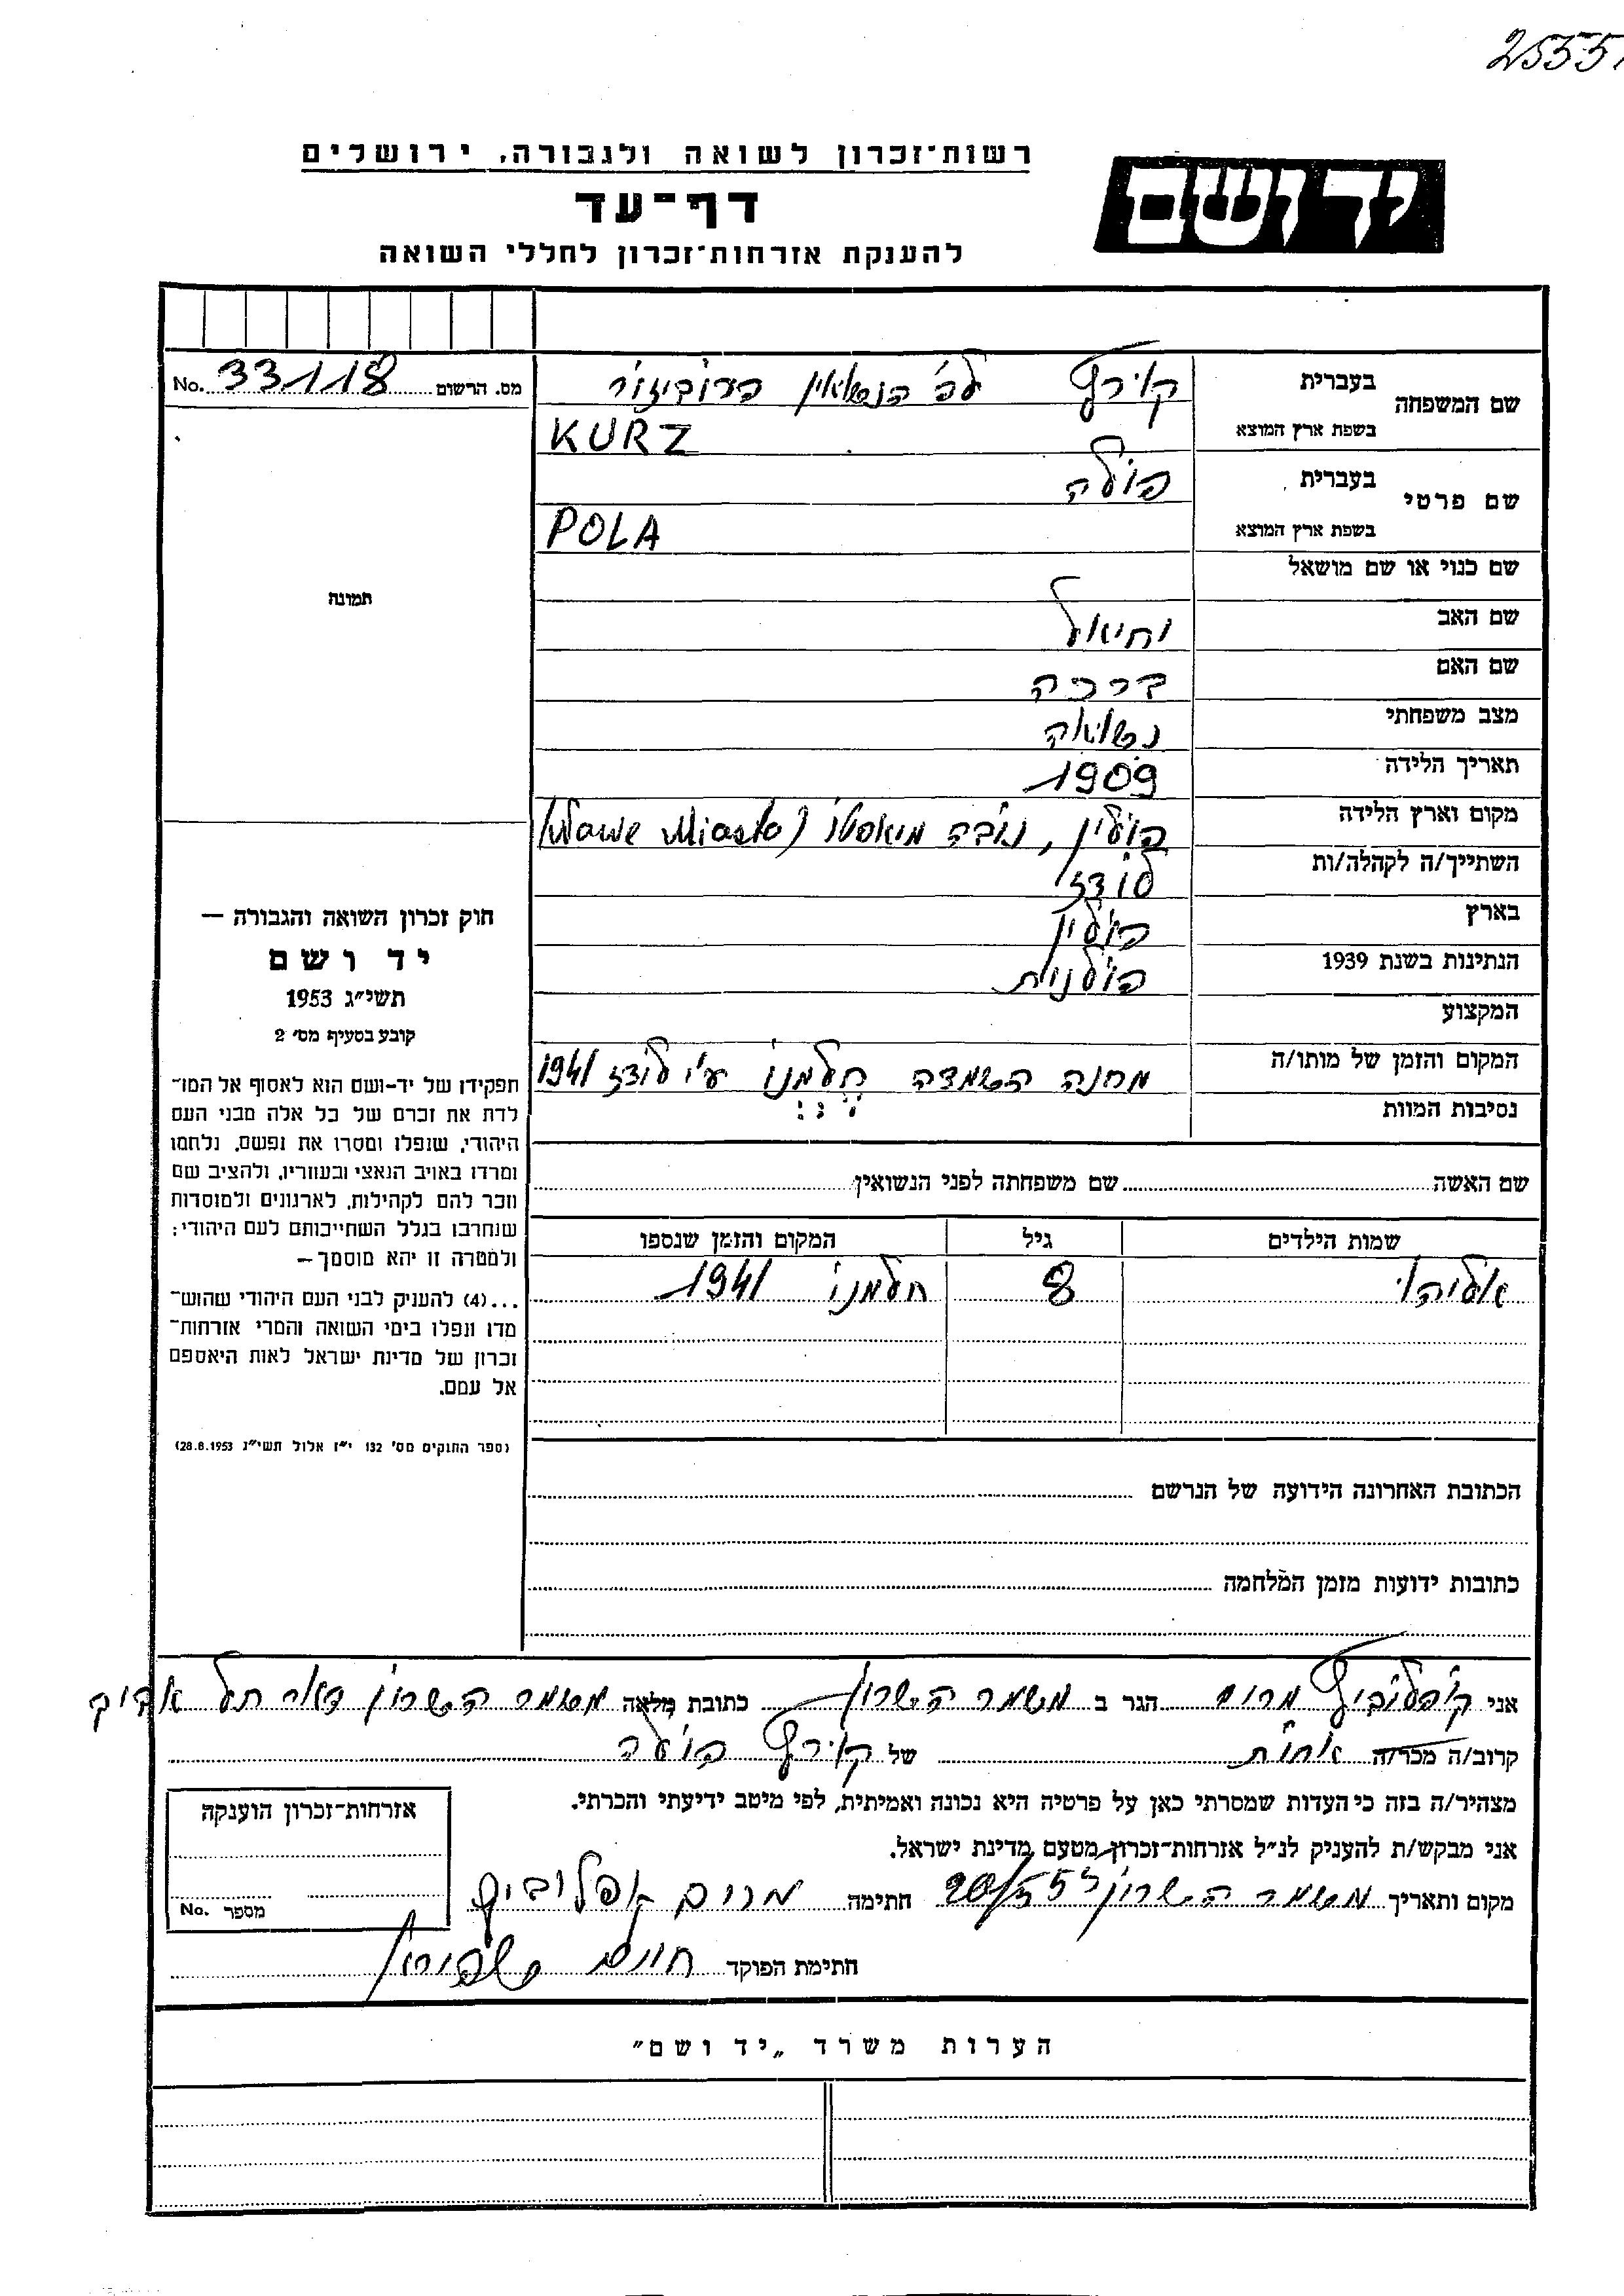 25551
רשות־זכרון לשואה ולגבורה, ירושלים
יד ושם
דף־עד
להענקת אזרחות־זכרון לחללי השואה
מס. הרשום 33118 No.
שם המשפחה
בעברית קורץ לפ' הנשואין
בשפת ארץ המוצא KURZ
שם פרטי
בעברית פולה
בשפת ארץ המוצא POLA
שם כנוי או שם מושאל
שם האב יחיאל
שם האם ברכה
מצב משפחתי נשואה
תאריך הלידה 1909
מקום וארץ הלידה פולין, נובה מיאסטו (Nowe Miasto)
השתייך/ה לקהלה/ות לודז
בארץ פולין
הנתינות בשנת 1939 פולנית
המקצוע
המקום והזמן של מותו/ה מחנה השמדה חלמנו ע"י לודז 1941
נסיבות המוות
שם האשה שם משפחתה לפני הנשואין
שמות הילדים גיל המקום והזמן שנספו
אליהו 8 חלמנו 1941
הכתובת האחרונה הידועה של הנרשם
כתובות ידועות מזמן המלחמה
תמונה
חוק זכרון השואה והגבורה —
יד ושם
תשי״ג 1953
קובע בסעיף מס׳ 2
תפקידו של יד-ושם הוא לאסוף אל המו־
לדת את זכרם של כל אלה מבני העם
היהודי, שנפלו ומסרו את נפשם, נלחמו
ומרדו באויב הנאצי ובעוזריו, ולהציב שם
וזכר להם לקהילות, לארגונים ולמוסדות
שנחרבו בגלל השתייכותם לעם היהודי;
ולמטרה זו יהא מוסמך —
...(4) להעניק לבני העם היהודי שהוש־
מדו ונפלו בימי השואה והמרי אזרחות־
זכרון של מדינת ישראל לאות היאספם
אל עמם.
(ספר החוקים מס׳ 132 י״ז אלול תשי״ג 28.8.1953)
אני מרים הגר ב משמר השרון כתובת מלאה משמר השרון דאר תל אביב
קרוב/ה מכר/ה אחות של קורץ פולה
מצהיר/ה בזה כי העדות שמסרתי כאן על פרטיה היא נכונה ואמיתית, לפי מיטב ידיעתי והכרתי.
אני מבקש/ת להעניק לנ״ל אזרחות־זכרון מטעם מדינת ישראל.
מקום ותאריך משמר השרון חתימה מרים
חתימת הפוקד חיים
אזרחות־זכרון הוענקה
מספר No.
הערות משרד „יד ושם״